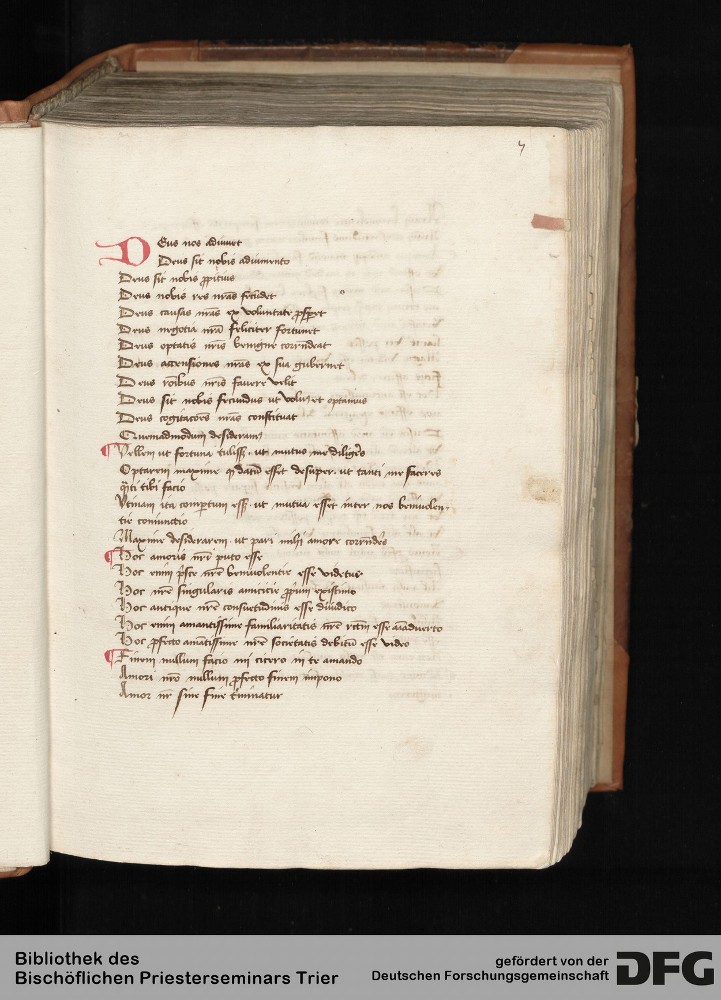 7
Deus nos adiuvet
Deus sit nobis adiumento
Deus sit nobis ꝓpitius
Deus nobis res nr̄as secūdet
Deus causas nr̄as ex voluntate ꝓsꝑet
Deus negotia nr̄a feliciter fortunet
Deus optatis nr̄is benigne corrn̄deat
Deus accensiones nr̄as ex sua gubernet
Deus nr̄is favere velit
Deus sit nobis secundus ut et optamus
Deus cogitacōes nr̄as constituat
Quemadmodum desideram
Vellem ut fortuna tuliss; ut mutuo me diligēs
Optarem maxime datū esset desuper ut tanti me faceres
q̄ti tibi facio
Vtinam ita compertum ess; ut mutua esset inter nos benivolen-
tie coniunctio
Maxime desiderarem ut pari mihi amore corrn̄dēs
Hoc amoris nr̄i puto esse
Hoc enim nr̄e benivolentie esse videtur
Hoc nr̄e singularis amicicie ꝓprium existimo
Hoc antique nr̄e consuetudinis esse diiudico
Hoc enim amantissime familiaritatis nr̄e esse aīadverto
Hoc ꝓfecto amātissime nr̄e societatis debitū esse video
Finem nullum facio mi cicero in te amando
Amori nr̄o nullum ꝓfecto finem impono
Amor nr̄ sine fine t̄minatur
Bibliothek des
Bischöflichen Priesterseminars Trier
gefördert von der
Deutschen Forschungsgemeinschaft
DFG